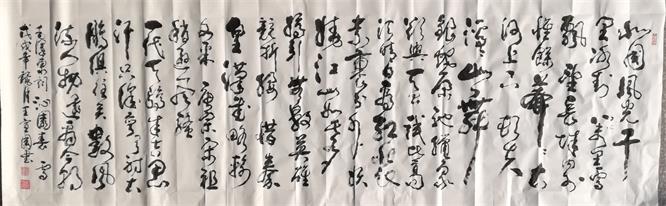 北国风光千
里冰封万里雪
飘望长城内外
惟馀莽莽大
河上下顿失
滔滔山舞
银蛇原驰蜡象
欲与天公试比高
须晴日看红妆
素裹分外妖
娆江山如此多
娇引无数英雄
竞折腰惜秦
皇汉武略输
文采唐宗宋祖
稍逊风骚
一代天骄成吉思
汗只识弯弓射大
雕俱往矣数风
流人物还看今朝
毛泽东词沁园春雪
戊戌年腊月王